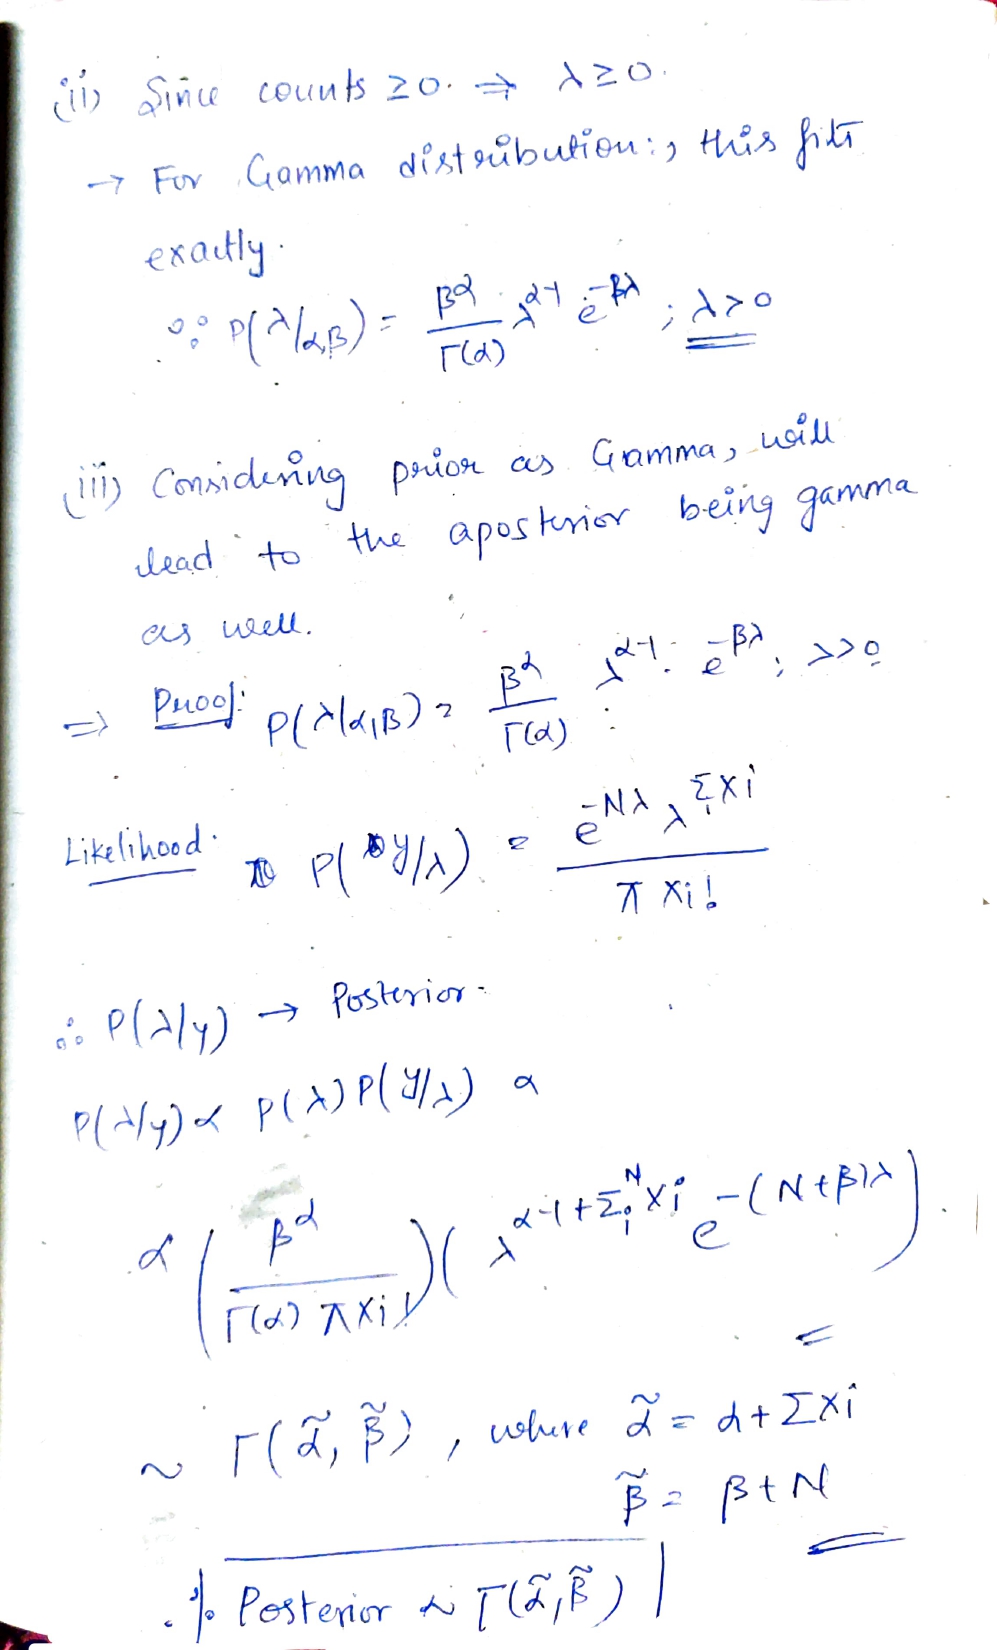 (ii) Since counts ≥0. ⇒ λ≥0.
→ For Gamma distribution:, this fits
exactly.
∵ P(λ/α,β) = β^α/Γ(α) · λ^α-1 e^-βλ ; λ>0
(iii) Considering prior as Gamma, will
lead to the aposterior being gamma
as well.
⇒ Proof: P(λ|α,β) = β^α/Γ(α) · λ^α-1 · e^-βλ ; λ>0
Likelihood. P(y/λ) = e^-Nλ λ^Σxi / π xi!
∴ P(λ/y) → Posterior.
P(λ/y) α P(λ) P(y/λ) α
α (β^α / Γ(α) π xi!) (λ^α-1+Σ_i^N xi e^-(N+β)λ).
~ Γ(α̃, β̃), where α̃ = α+Σxi
β̃ = β+N
∴ Posterior ~ Γ(α̃,β̃)